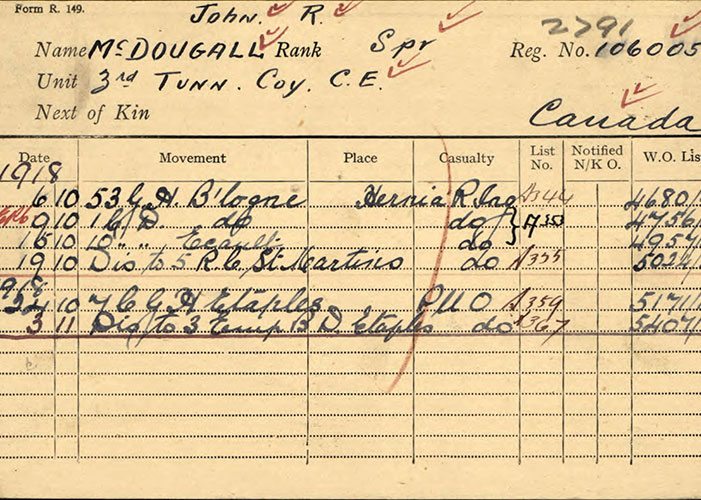 Form R. 149.
John. R.
2791
Name McDOUGALL Rank Spr Reg. No. 106005
Unit 3rd Tunn. Coy. C.E.
Next of Kin Canada
Date Movement Place Casualty List No. Notified N/K O. W.O. List
1918
6 10 53 G.H. B'logne Hernia R. Ing A344 4680
9 10 1 C D. do do A350 4756
15 10 10 " " Ecault do 4957
19 10 Dis to 5 R.C. St. Martins do A355 5024
1918
24 10 7 C. G.H Etaples P U O A359 5171
3 11 Dis to 3 Emp B D. Etaples do A367 5407